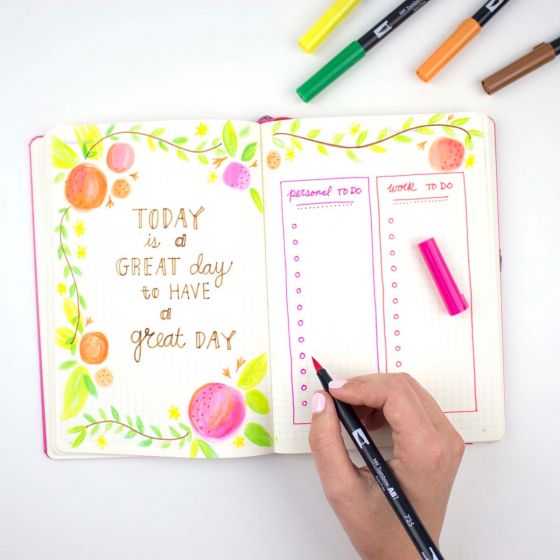 TODAY
is a
GREAT day
to HAVE
a
great DAY
personal TO DO
work TO DO
Tombow ABT
725